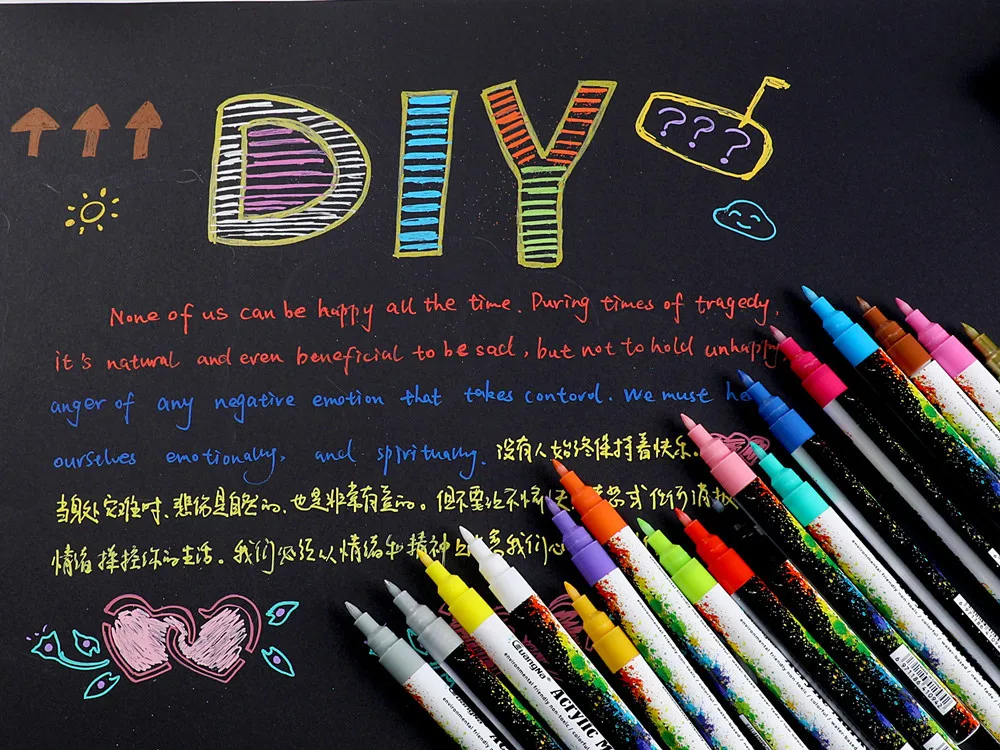 DIY
? ? ?
None of us can be happy all the time. During times of tragedy,
it's natural and even beneficial to be sad, but not to hold unhappy
anger of any negative emotion that takes contord. We must he
ourselves emotionally, and spiritually. 没有人始终保持着快乐。
当身处灾难时、悲伤是自然的、也是非常有益的。但不要让不愉
情绪操控你的生活。我们必须从情绪和精神上
GuangNa
environmental friendly non-toxic / colorful
Acrylic M